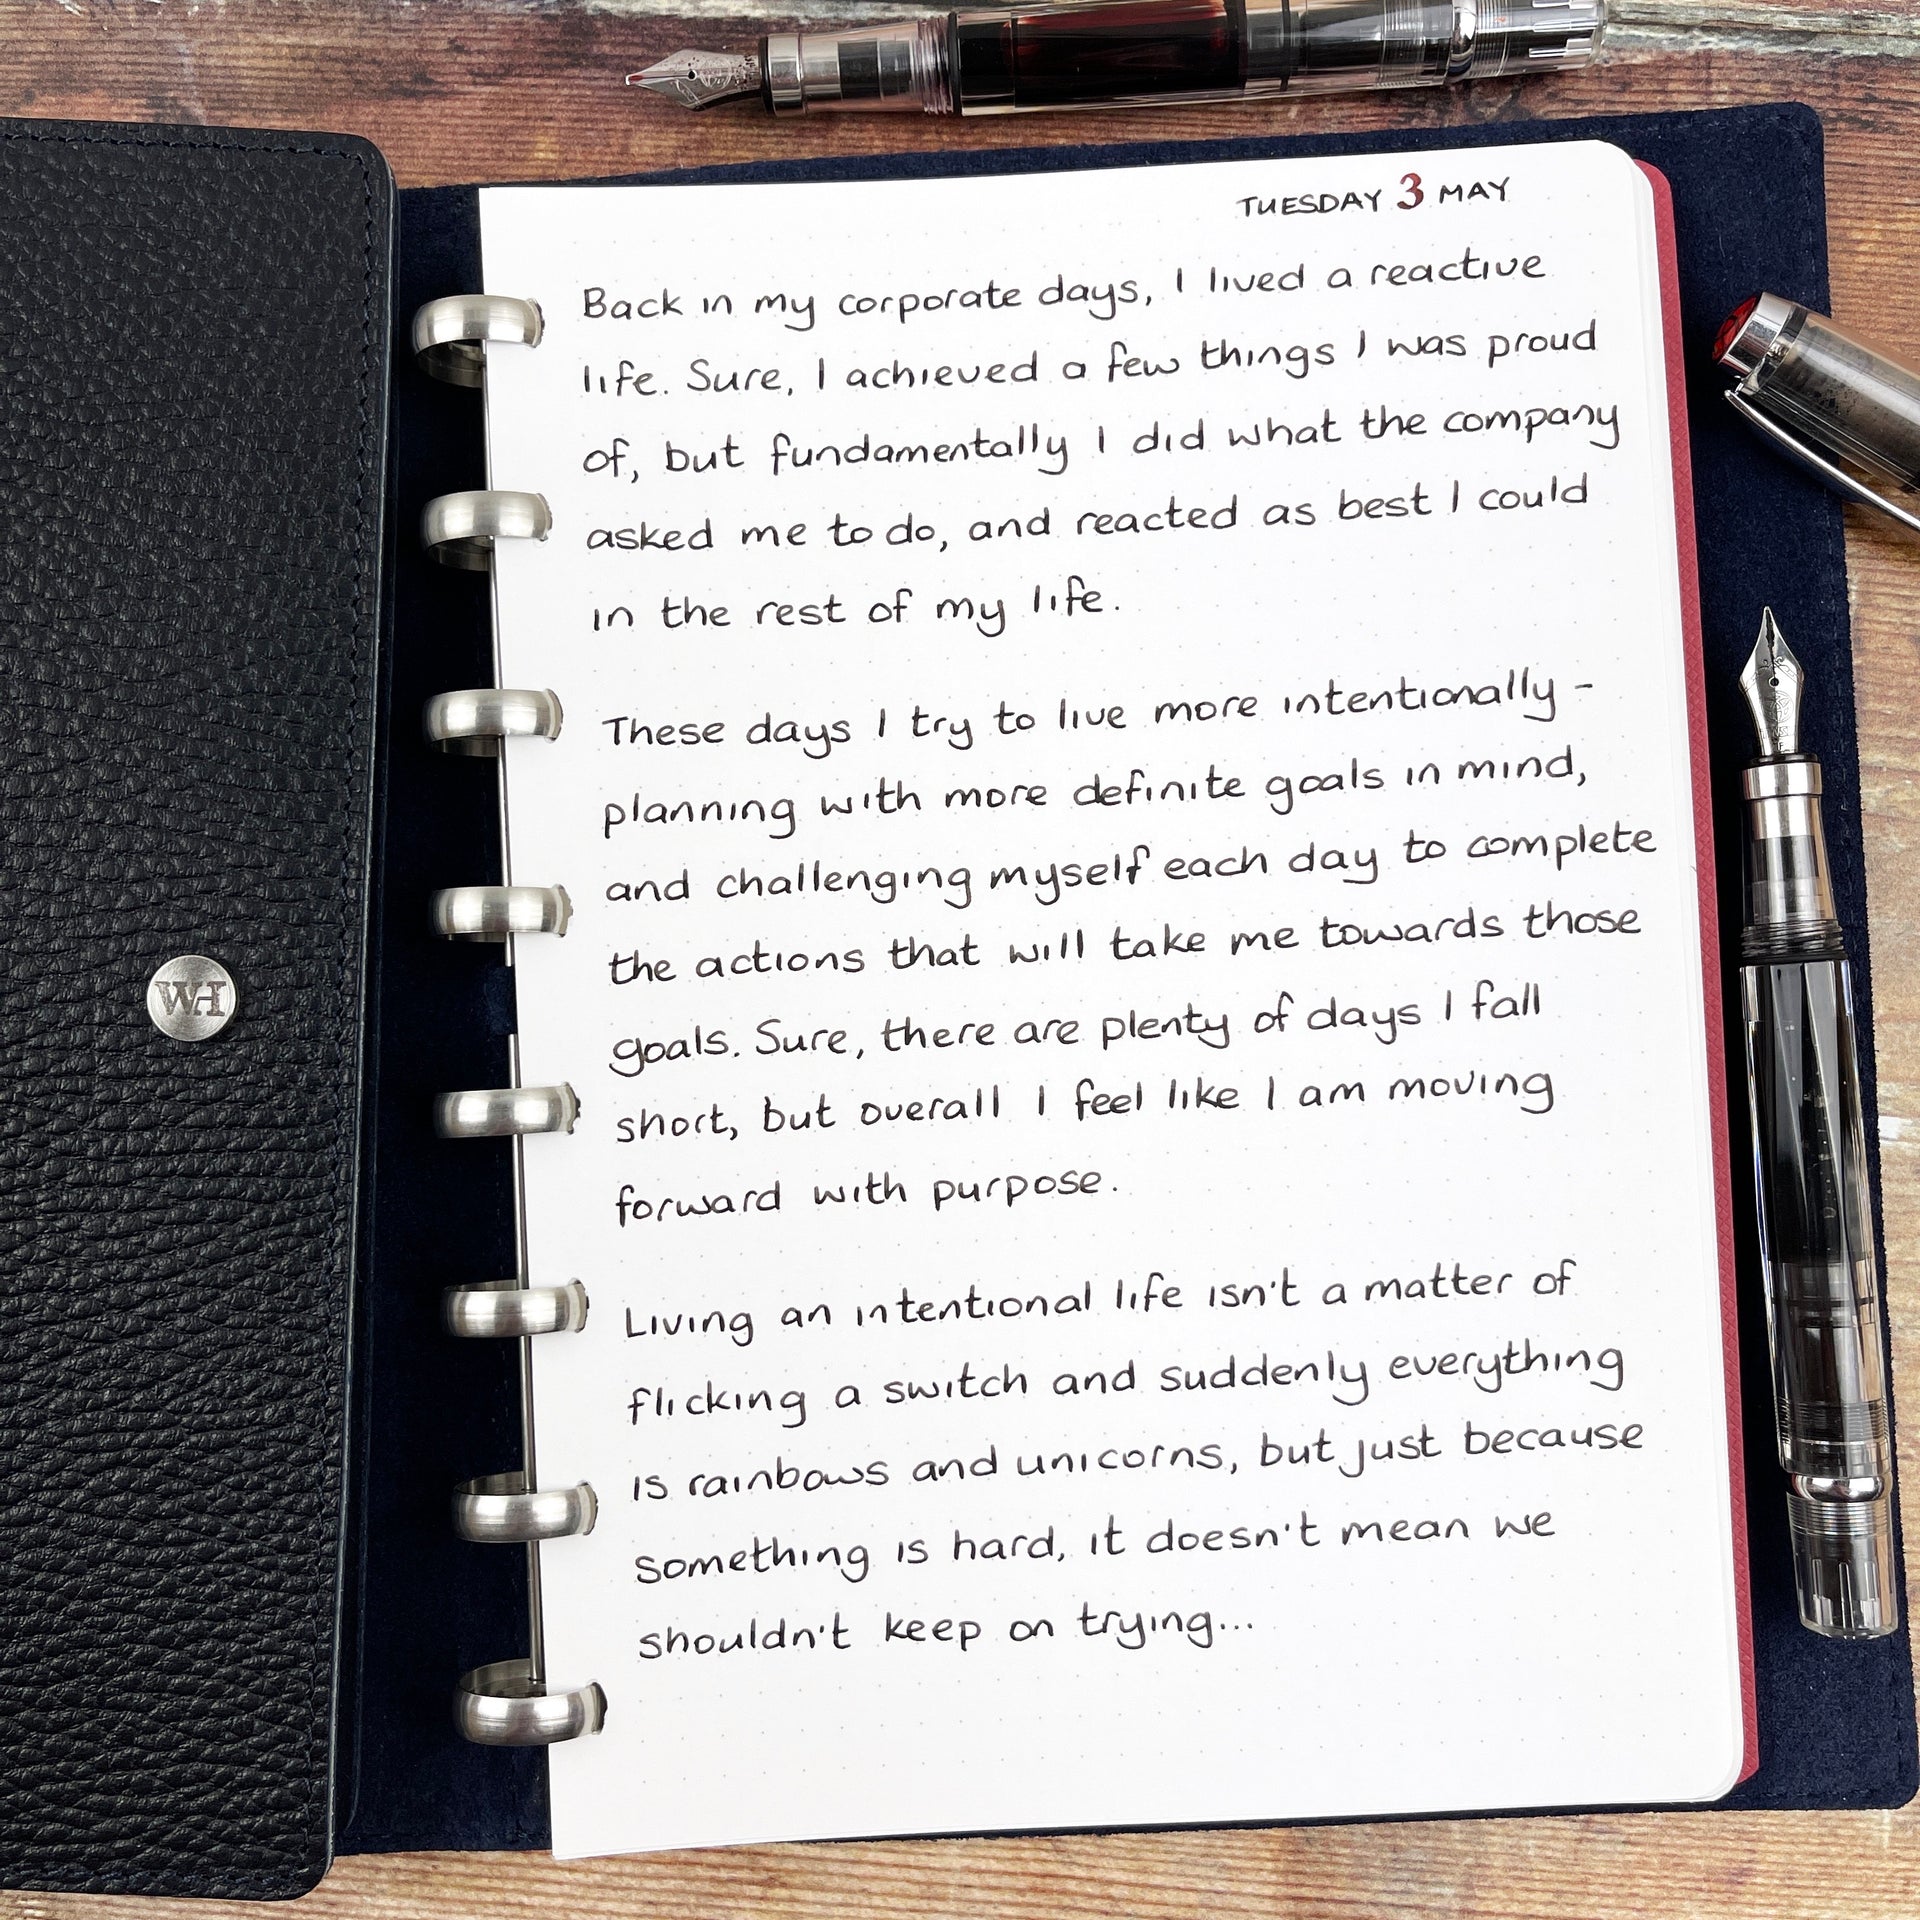 TUESDAY 3 MAY
Back in my corporate days, I lived a reactive
life. Sure, I achieved a few things I was proud
of, but fundamentally I did what the company
asked me to do, and reacted as best I could
in the rest of my life.
These days I try to live more intentionally -
planning with more definite goals in mind,
and challenging myself each day to complete
the actions that will take me towards those
goals. Sure, there are plenty of days I fall
short, but overall I feel like I am moving
forward with purpose.
Living an intentional life isn't a matter of
flicking a switch and suddenly everything
is rainbows and unicorns, but just because
something is hard, it doesn't mean we
shouldn't keep on trying...
WH